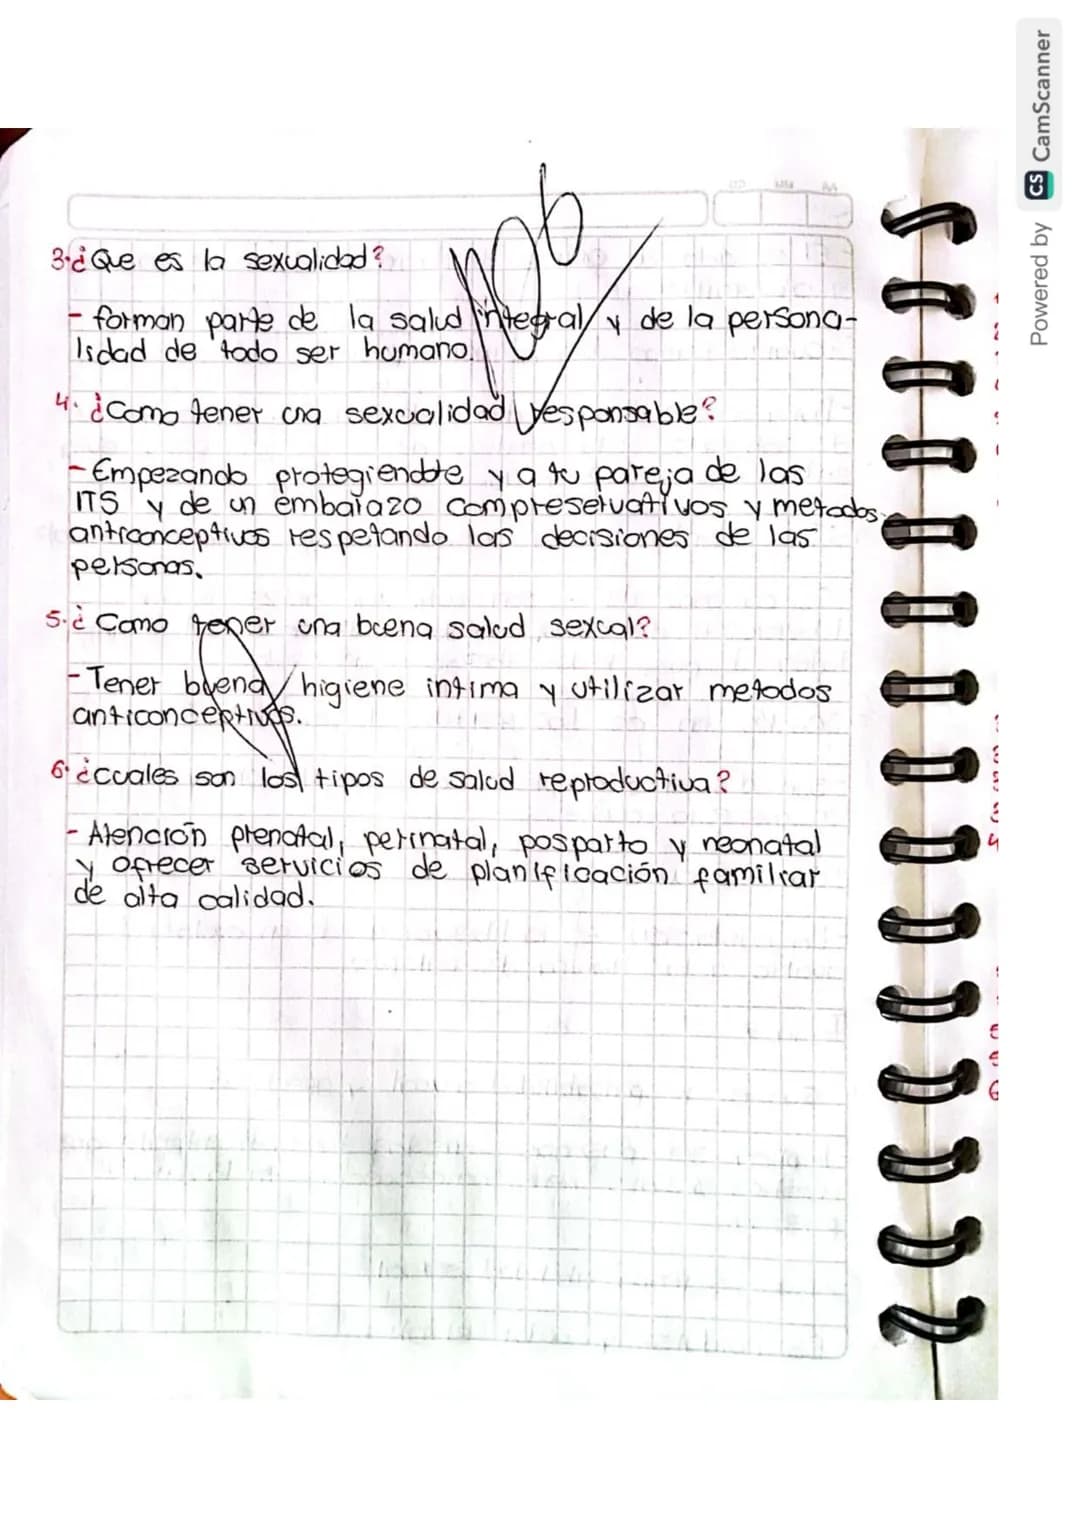 3.¿Que es la sexualidad?
- forman parte de la salud integral y de la persona-
lidad de todo ser humano.
4. ¿Como tener una sexualidad responsable?
- Empezando protegiendote y a tu pareja de las
ITS y de un embarazo con preservativos y metodos
anticonceptivos respetando las decisiones de las
personas.
5.¿ Como tener una buena salud sexual?
- Tener buena higiene intima y utilizar metodos
anticonceptivos.
6.¿cuales son los tipos de salud reproductiva?
- Atención prenatal, perinatal, posparto y neonatal
y ofrecer servicios de planificación familiar
de alta calidad.
Powered by CS CamScanner